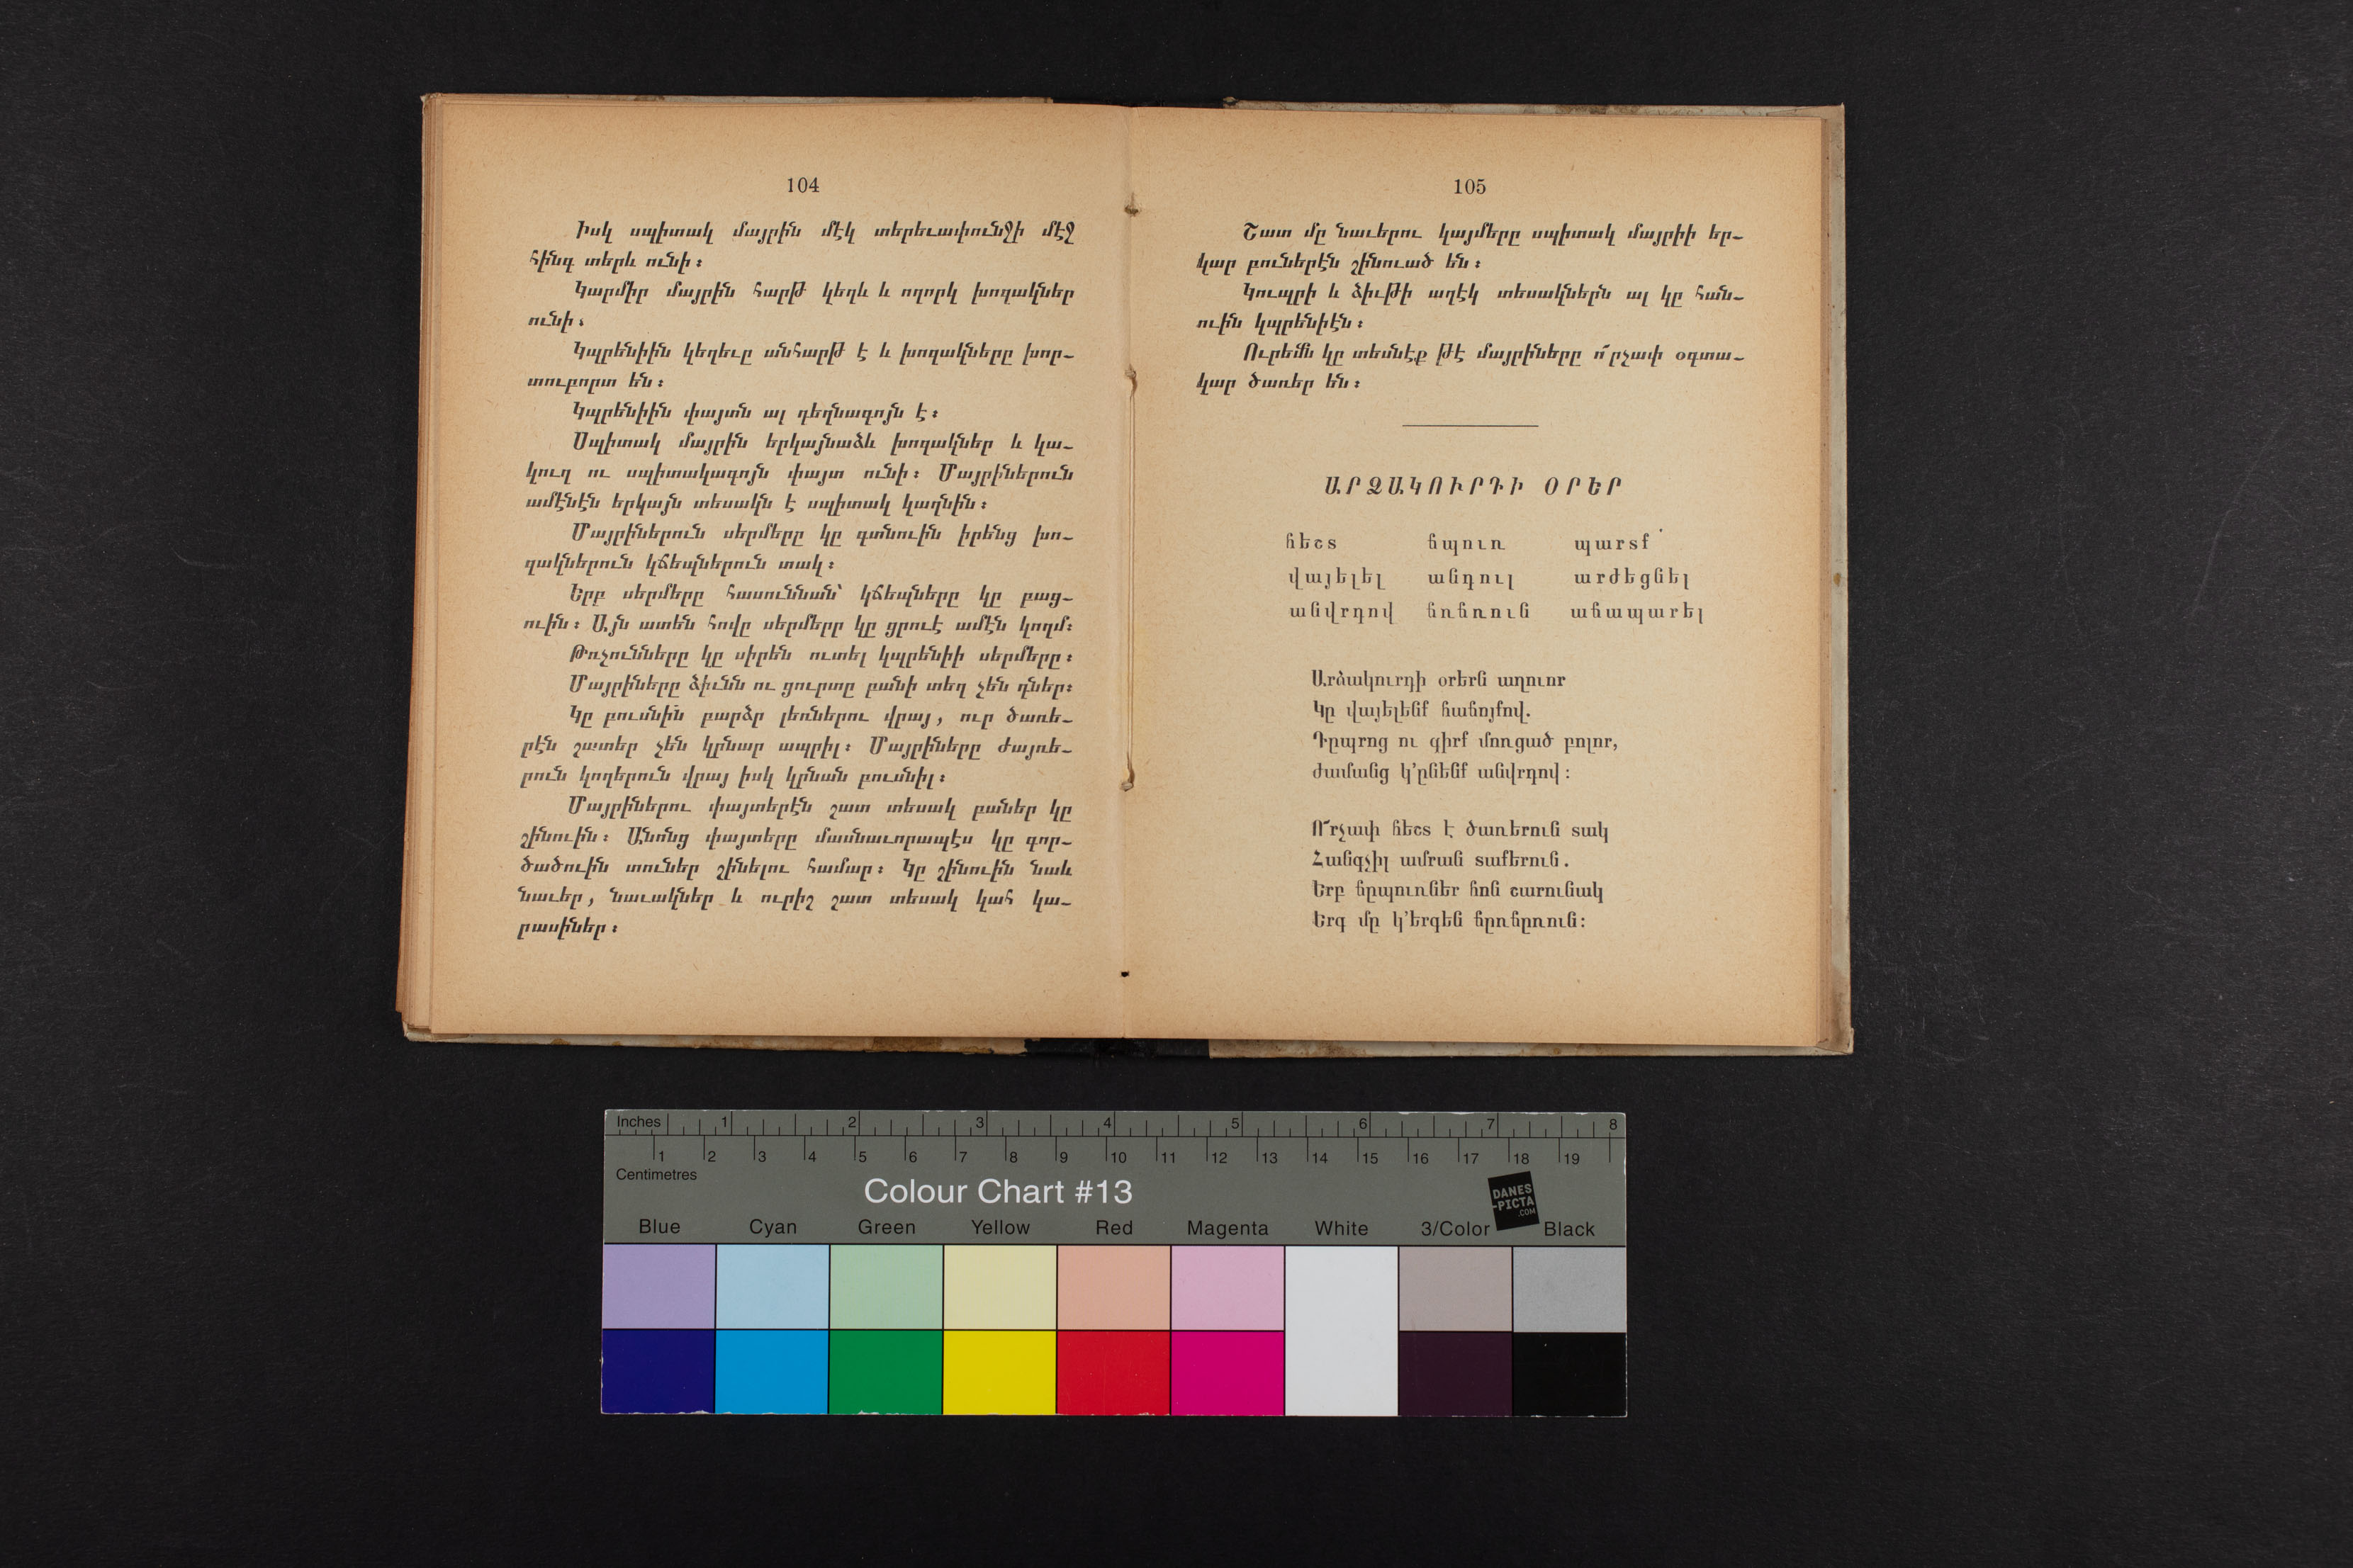 104
Իսկ սպիտակ մայրին մէկ տերեւափունջի մէջ
հինգ տերև ունի։
Կարմիր մայրին հարթ կեղև և ողորկ խոզակներ
ունի.
Կպրենիին կեղեւը անհարթ է և խոզակները խոր-
տուբորտ են։
Կպրենիին փայտն ալ դեղնագոյն է։
Սպիտակ մայրին երկայնաձև խոզակներ և կա-
կուղ ու սպիտակագոյն փայտ ունի։ Մայրիներուն
ամէնէն երկայն տեսակն է սպիտակ կաղնին։
Մայրիներուն սերմերը կը գտնուին իրենց խո-
զակներուն կճեպներուն տակ։
Երբ սերմերը հասուննան՝ կճեպները կը բաց-
ուին։ Այն ատեն հովը սերմերը կը ցրուէ ամէն կողմ։
Թռչունները կը սիրեն ուտել կպրենիի սերմերը։
Մայրիները ձիւնն ու ցուրտը բանի տեղ չեն դներ։
Կը բուսնին բարձր լեռներու վրայ, ուր ծառե-
րէն շատեր չեն կրնար ապրիլ։ Մայրիները ժայռե-
րուն կողերուն վրայ իսկ կրնան բուսնիլ։
Մայրիներու փայտերէն շատ տեսակ բաներ կը
շինուին։ Անոնց փայտերը մասնաւորապէս կը գոր-
ծածուին տուներ շինելու համար։ Կը շինուին նաև
նաւեր, նաւակներ և ուրիշ շատ տեսակ կահ կա-
րասիներ։
105
Շատ մը նաւերու կայմերը սպիտակ մայրիի եր-
կար բուներէն շինուած են։
Կուպրի և ձիւթի աղէկ տեսակներն ալ կը հան-
ուին կպրենիէն։
Ուրեմն կը տեսնէք թէ մայրիները ո՜րչափ օգտա-
կար ծառեր են։
ԱՐՁԱԿՈՒՐԴԻ ՕՐԵՐ
հեշտ ճպուռ պարտք
վայելել անդուլ արժեցնել
անվրդով ճռճռուն աճապարել
Արձակուրդի օրերն աղուոր
Կը վայելենք հաճոյքով.
Դըպրոց ու գիրք մոռցած բոլոր,
Ժամանց կ՚ընենք անվրդով։
Ո՜րչափ հեշտ է ծառերուն տակ
Հանգչիլ ամրան տաքերուն.
Երբ ճըպուռներ հոն շարունակ
Երգ մը կ՚երգեն ճըռճըռուն։
Inches 1 2 3 4 5 6 7 8
1 2 3 4 5 6 7 8 9 10 11 12 13 14 15 16 17 18 19
Centimetres
Colour Chart #13
DANES
-PICTA
.COM
Blue Cyan Green Yellow Red Magenta White 3/Color Black